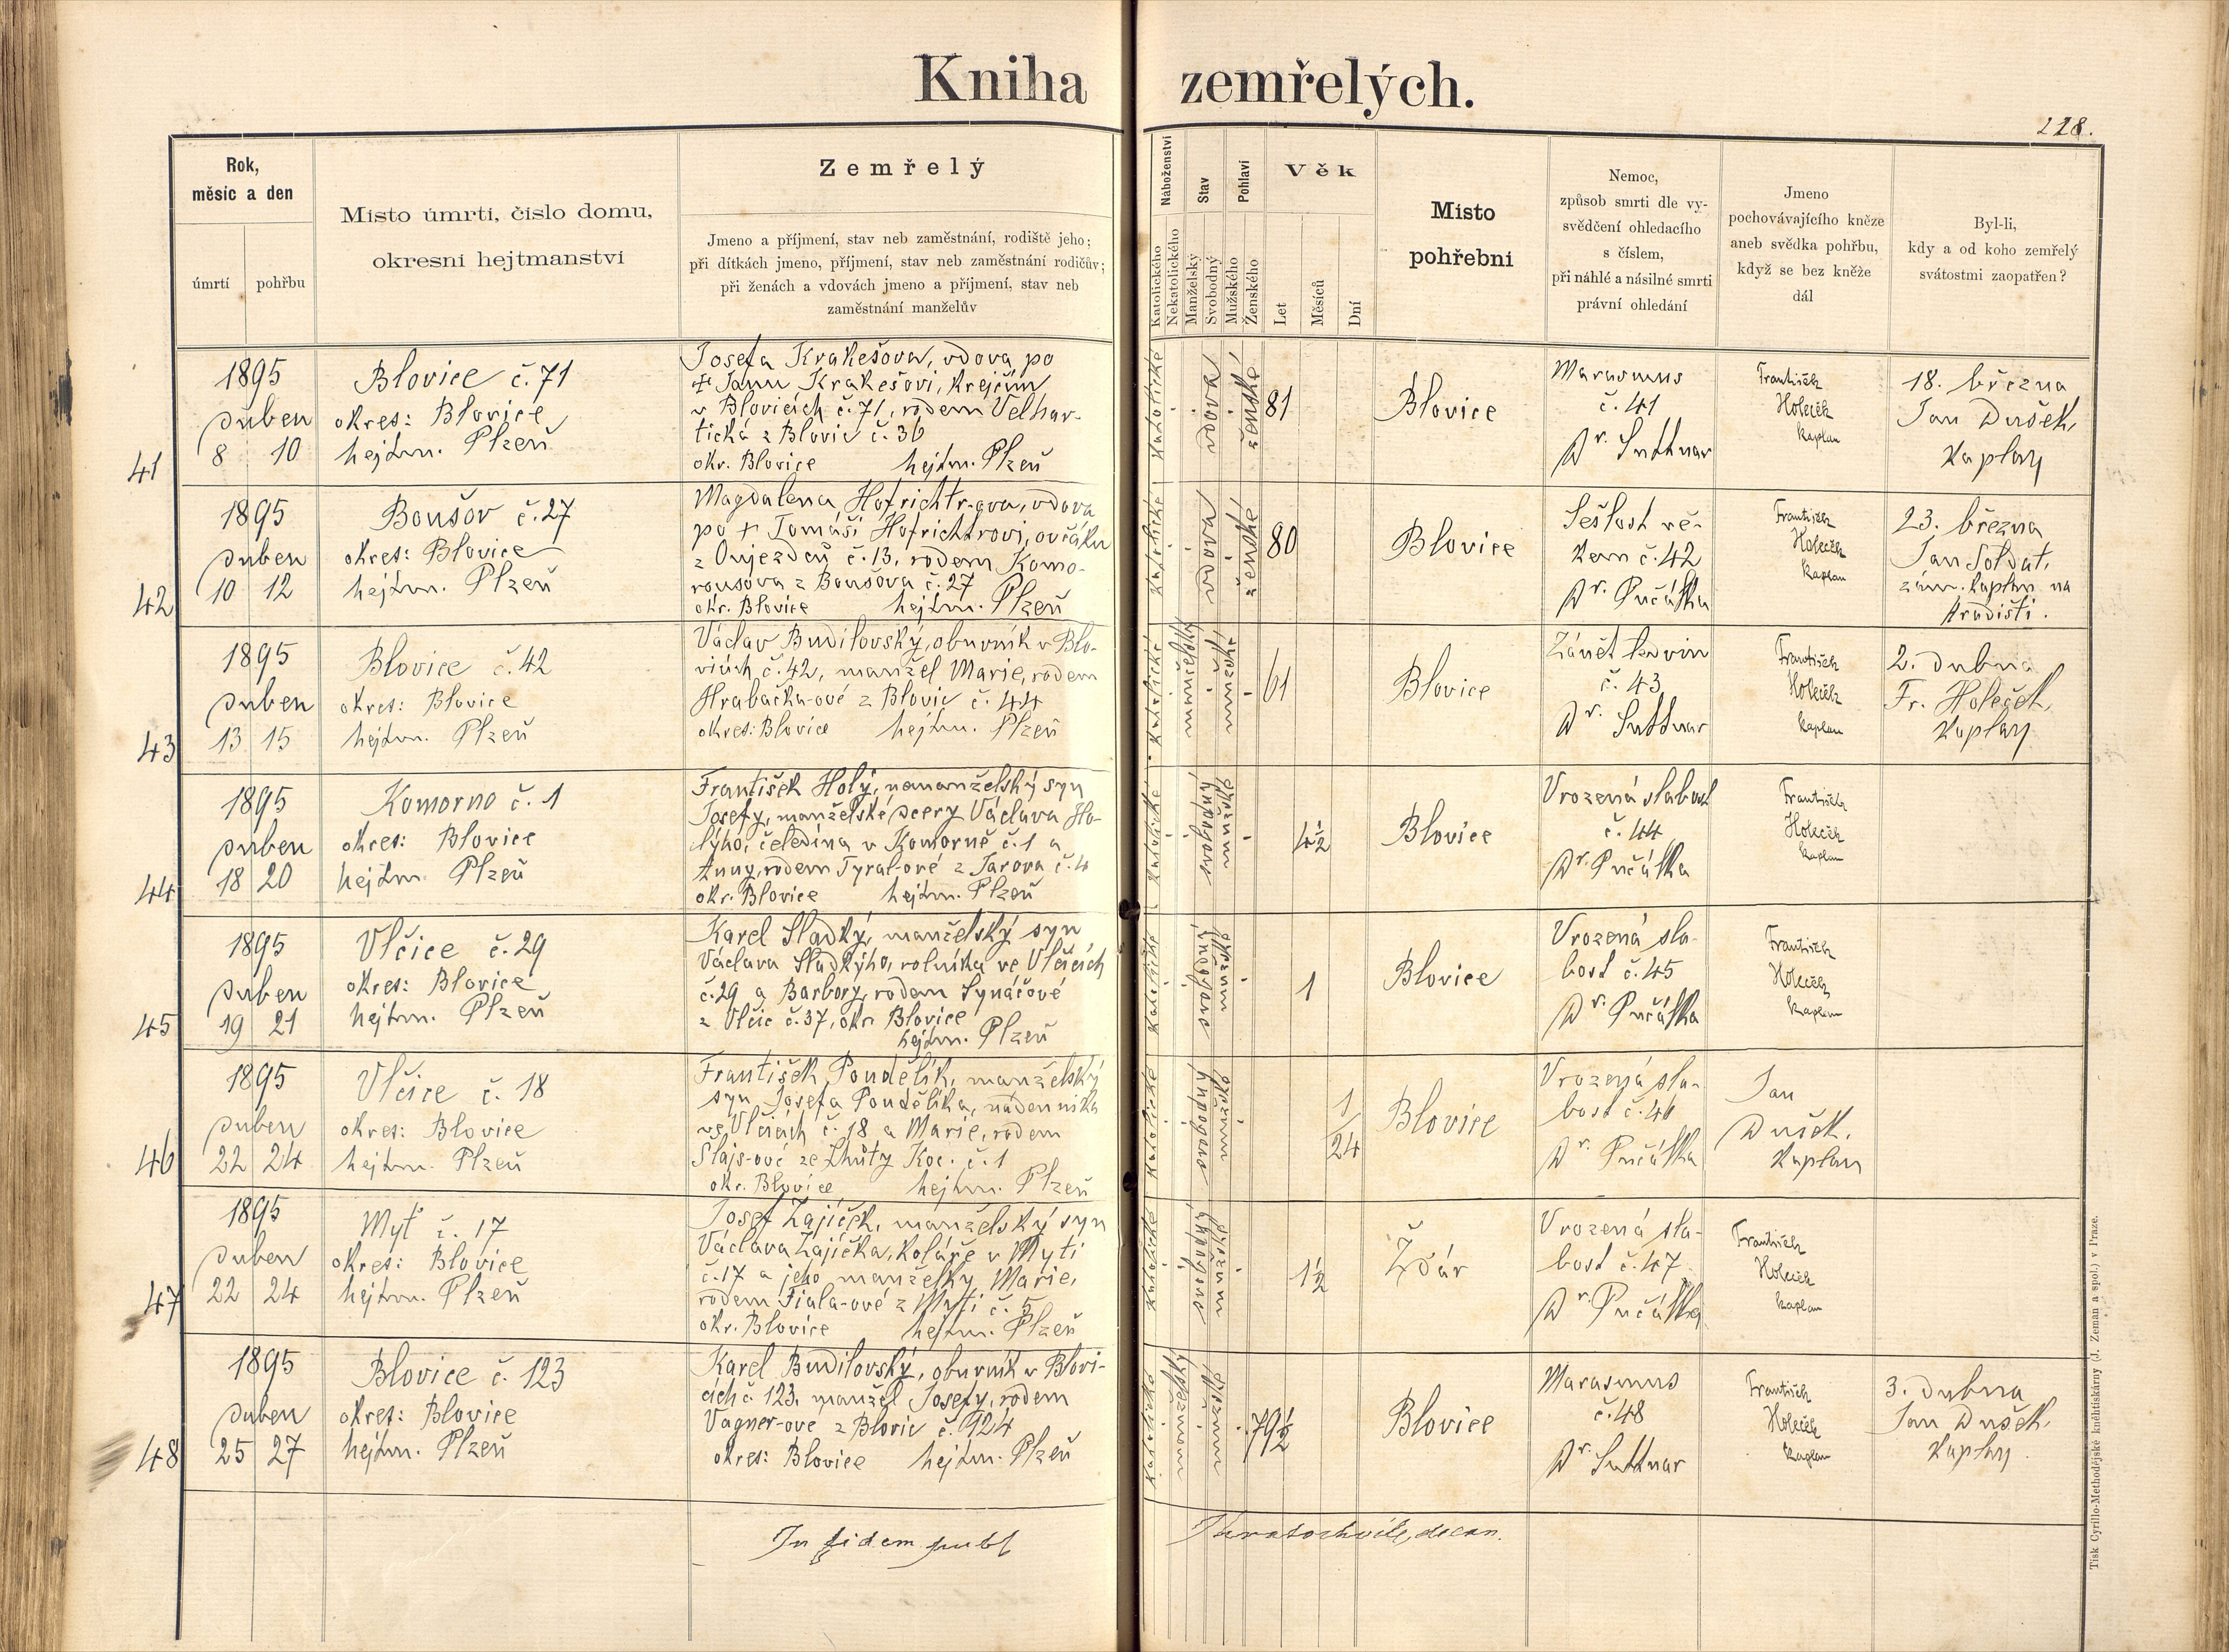 Kniha zemřelých.
228.
Rok,
měsíc a den
úmrtí
pohřbu
Místo úmrtí, číslo domu,
okresní hejtmanství
Zemřelý
Jmeno a příjmení, stav neb zaměstnání, rodiště jeho;
při dítkách jmeno, příjmení, stav neb zaměstnání rodičův;
při ženách a vdovách jmeno a příjmení, stav neb
zaměstnání manželův
Náboženství
Katolického
Nekatolického
Stav
Manželský
Svobodný
Pohlaví
Mužského
Ženského
Věk
Let
Měsíců
Dní
Místo
pohřební
Nemoc,
způsob smrti dle vy-
svědčení ohledacího
s číslem,
při náhlé a násilné smrti
právní ohledání
Jmeno
pochovávajícího kněze
aneb svědka pohřbu,
když se bez kněže
dál
Byl-li,
kdy a od koho zemřelý
svátostmi zaopatřen?
41
1895
duben
8 10
Blovice č. 71
okres: Blovice
hejtm. Plzeň
Josefa Krakešova, vdova po
† Janu Krakešovi, krejčím
v Blovicích č. 71, rodem Velhar-
tická z Blovic č. 36
okr. Blovice hejtm. Plzeň
katolické
vdova
ženské
81
Blovice
Marasmus
č. 41
Dr. Suttnar
František
Holeček
kaplan
18. března
Jan Dušek,
kaplan
42
1895
duben
10 12
Boušov č. 27
okres: Blovice
hejtm. Plzeň
Magdalena Hofrichtr-ova, vdova
po † Tomáši Hofrichtrovi, ovčáku
z Oujezda č. 13, rodem Komo-
rousova z Boušova č. 27
okr. Blovice hejtm. Plzeň
katolické
vdova
ženské
80
Blovice
Sešlost vě-
kem č. 42
Dr. Pučálka
František
Holeček
kaplan
23. března
Jan Soldat,
zám. kaplan na
Hradišti.
43
1895
duben
13 15
Blovice č. 42
okres: Blovice
hejtm. Plzeň
Václav Budilovský, obuvník v Blo-
vicích č. 42, manžel Marie, rodem
Hrabačka-ové z Blovic č. 44
okres: Blovice hejtm. Plzeň
katolické
manželský
mužské
61
Blovice
Zánět ledvin
č. 43
Dr. Suttnar
František
Holeček
kaplan
2. dubna
Fr. Holeček,
kaplan
44
1895
duben
18 20
Komorno č. 1
okres: Blovice
hejtm. Plzeň
František Holý, nemanželský syn
Josefy, manželské dcery Václava Ho-
lýho, čeledína v Komorně č. 1 a
Anny, rodem Tyral-ové z Jarova č. 4
okr. Blovice hejtm. Plzeň
katolické
svobodný
mužské
4½
Blovice
Vrozená slabost
č. 44
Dr. Pučálka
František
Holeček
kaplan
45
1895
duben
19 21
Vlčice č. 29
okres: Blovice
hejtm. Plzeň
Karel Sladký, manželský syn
Václava Sladkýho, rolníka ve Vlčicích
č. 29 a Barbory, rodem Synáčové
z Vlčic č. 37, okr. Blovice
hejtm. Plzeň
katolické
svobodný
mužské
1
Blovice
Vrozená sla-
bost č. 45
Dr. Pučálka
František
Holeček
kaplan
46
1895
duben
22 24
Vlčice č. 18
okres: Blovice
hejtm. Plzeň
František Pondělík, manželský
syn Josefa Pondělíka, nádenníka
ve Vlčicích č. 18 a Marie, rodem
Slajs-ové ze Lhůty Koc. č. 1
okr. Blovice hejtm. Plzeň
katolické
svobodný
mužské
1/24
Blovice
Vrozená sla-
bost č. 46
Dr. Pučálka
Jan
Dušek,
kaplan
47
1895
duben
22 24
Myť č. 17
okres: Blovice
hejtm. Plzeň
Josef Zajíček, manželský syn
Václava Zajíčka, koláře v Myti
č. 17 a jeho manželky Marie,
rodem Fiala-ové z Myti č. 5
okr. Blovice hejtm. Plzeň
katolické
svobodný
mužské
1½
Ždár
Vrozená sla-
bost č. 47
Dr. Pučálka
František
Holeček
kaplan
48
1895
duben
25 27
Blovice č. 123
okres: Blovice
hejtm. Plzeň
Karel Budilovský, obuvník v Blovi-
cích č. 123, manžel Josefy, rodem
Vagner-ové z Blovic č. 124
okres: Blovice hejtm. Plzeň
katolické
manželský
mužské
79½
Blovice
Marasmus
č. 48
Dr. Suttnar
František
Holeček
kaplan
3. dubna
Jan Dušek,
kaplan
In fidem publ
Kratochvíle, decan.
Tisk Cyrillo-Methodějské knihtiskárny (J. Zeman a spol.) v Praze.